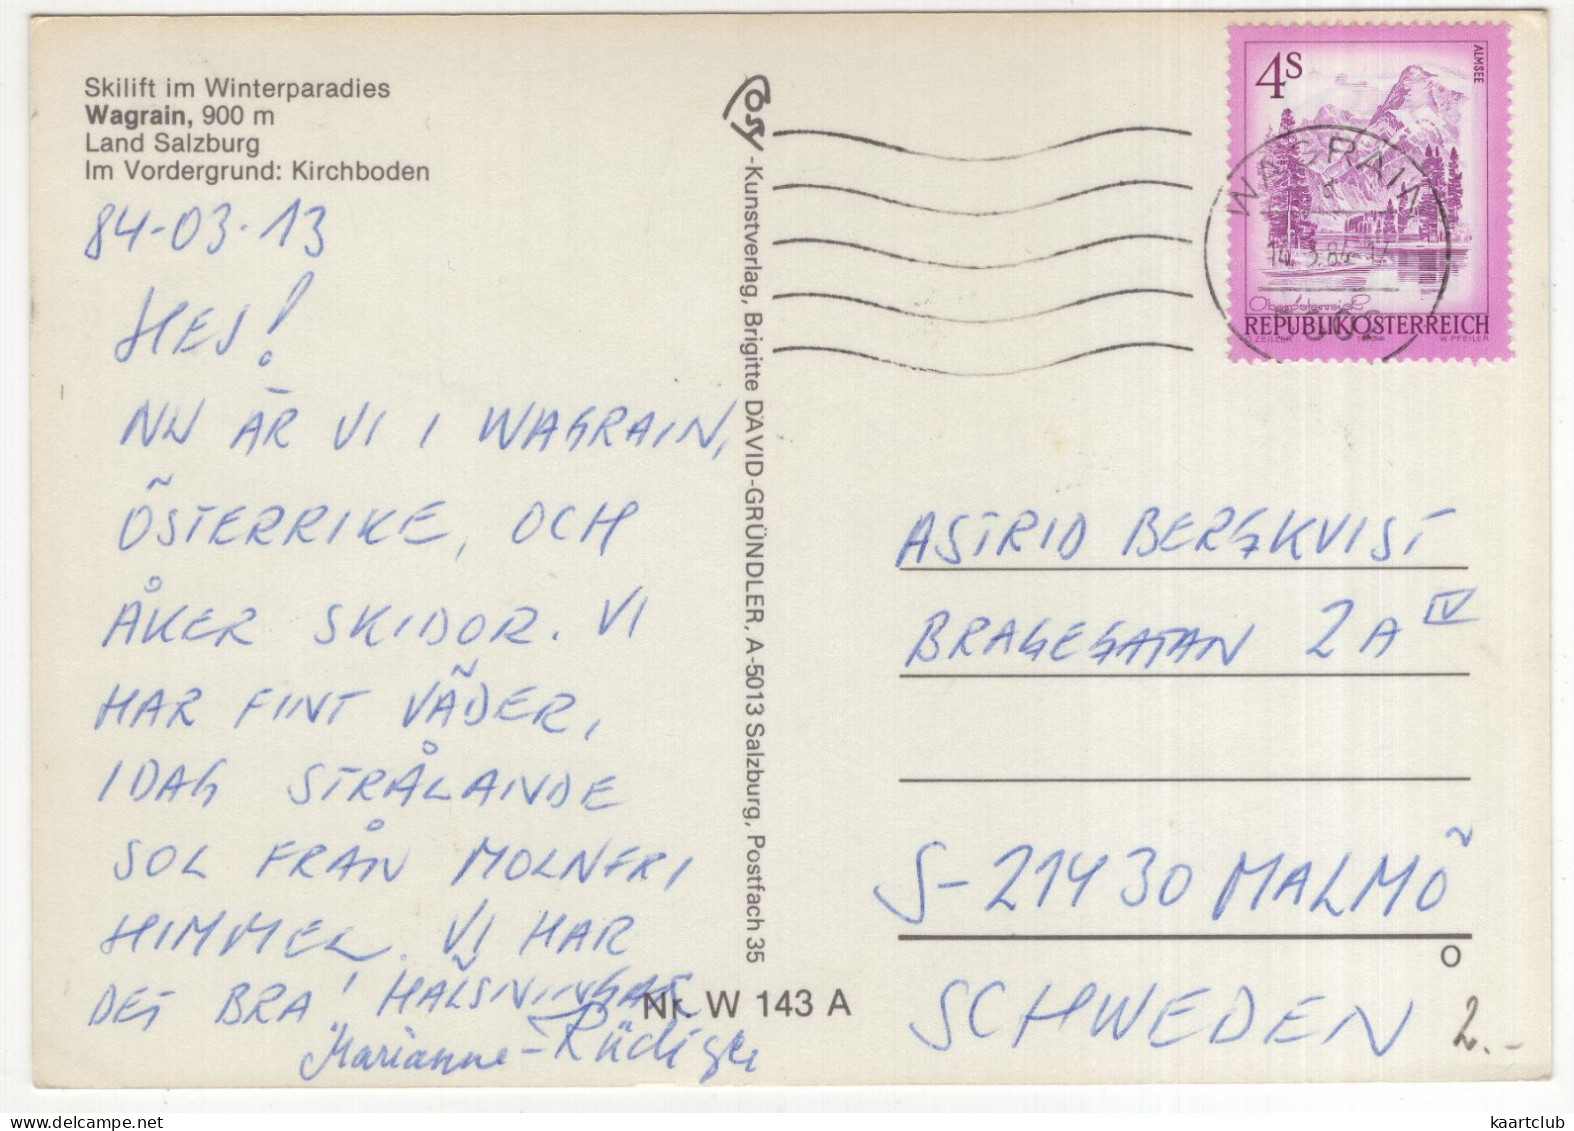 Skilift im Winterparadies
Wagrain, 900 m
Land Salzburg
Im Vordergrund: Kirchboden
84-03-13
HEJ!
NU ÄR VI I WAGRAIN,
ÖSTERRIKE, OCH
ÅKER SKIDOR. VI
HAR FINT VÄDER,
IDAG STRÅLANDE
SOL FRÅN MOLNFRI
HIMMEL. VI HAR
DET BRA! HÄLSNINGAR
Marianne-Rüdiger
Cosy-Kunstverlag, Brigitte DAVID-GRÜNDLER, A-5013 Salzburg, Postfach 35
Nr. W 143 A
4S
ALMSEE
WAGRAIN
14.3.84-17
Oberösterreich
REPUBLIK ÖSTERREICH
O ZEILLER
W PFEILER
ASTRID BERGKVIST
BRAGEGATAN 2A IV
S-21430 MALMÖ
O
SCHWEDEN
2.-
kaartclub